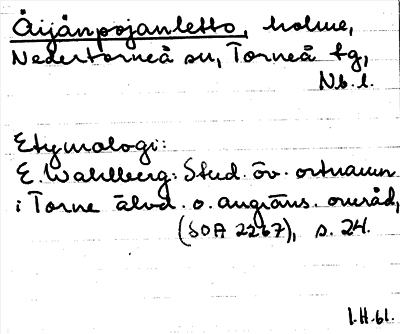 Äijänpojanletto, holme,
Nedertorneå sn, Torneå tg,
Nb. l.
Etymologi:
E. Wahlberg: Stud. öv. ortnamn
i Torne älvd. o. angräns. område,
(SOA 2267), s. 24.
I.H.61.